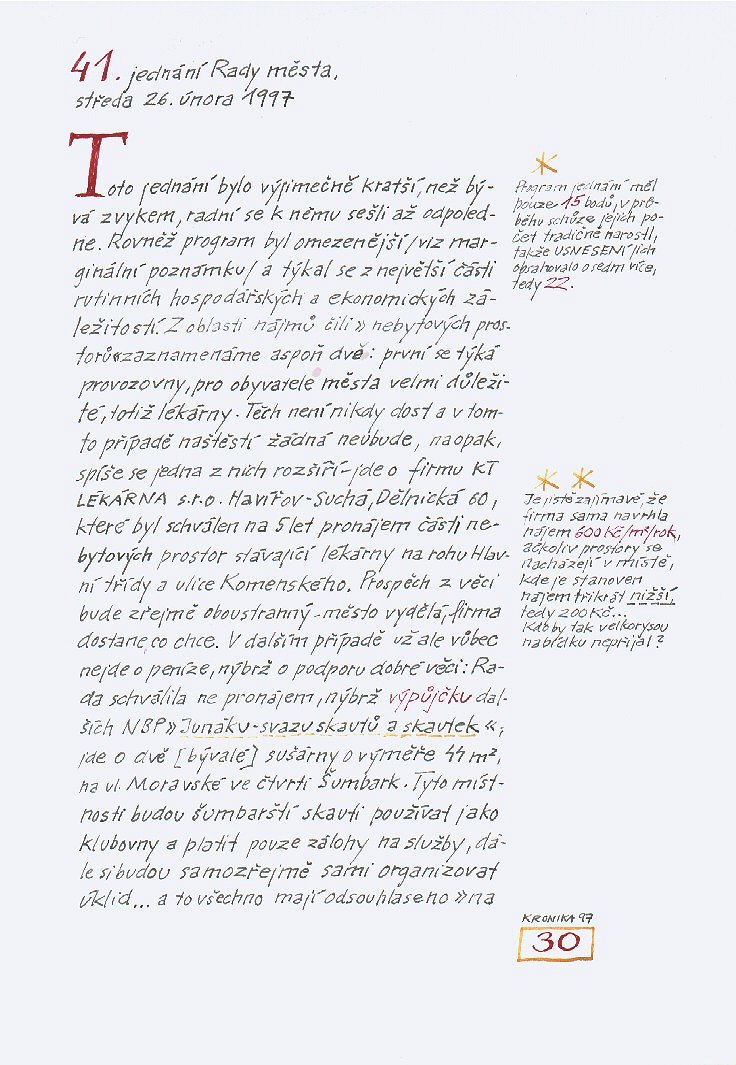 41. jednání Rady města,
středa 26. února 1997
Toto jednání bylo výjimečně kratší, než bý-
vá zvykem, radní se k němu sešli až odpoled-
ne. Rovněž program byl omezenější /viz mar-
ginální poznámku/ a týkal se z největší části
rutinních hospodářských a ekonomických zá-
ležitostí. Z oblasti nájmů čili » nebytových pros-
torů« zaznamenáme aspoň dvě: první se týká
provozovny, pro obyvatele města velmi důleži-
té, totiž lékárny. Těch není nikdy dost a v tom-
to případě naštěstí žádná neubude, naopak,
spíše se jedna z nich rozšíří - jde o firmu KT
LÉKÁRNA s.r.o. Havířov-Suchá, Dělnická 60,
které byl schválen na 5 let pronájem části ne-
bytových prostor stávající lékárny na rohu Hlav-
ní třídy a ulice Komenského. Prospěch z věci
bude zřejmě oboustranný - město vydělá, firma
dostane, co chce. V dalším případě už ale vůbec
nejde o peníze, nýbrž o podporu dobré věci: Ra-
da schválila ne pronájem, nýbrž výpůjčku dal-
ších NBP » Junáku - svazu skautů a skautek «,
jde o dvě [bývalé] sušárny o výměře 44 m²,
na ul. Moravské ve čtvrti Šumbark. Tyto míst-
nosti budou šumbarští skauti používat jako
klubovny a platit pouze zálohy na služby, dá-
le si budou samozřejmě sami organizovat
úklid... a to všechno mají odsouhlaseno » na
*
Program jednání měl
pouze 15 bodů, v prů-
běhu schůze jejich po-
čet tradičně narostl,
takže USNESENÍ jich
obsahovalo o sedm více,
tedy 22.
* *
Je jistě zajímavé, že
firma sama navrhla
nájem 600 Kč/m²/rok,
ačkoliv prostory se
nacházejí v místě,
kde je stanoven
nájem třikrát nižší,
tedy 200 Kč...
Kdo by tak velkorysou
nabídku nepřijal?
KRONIKA 97
30